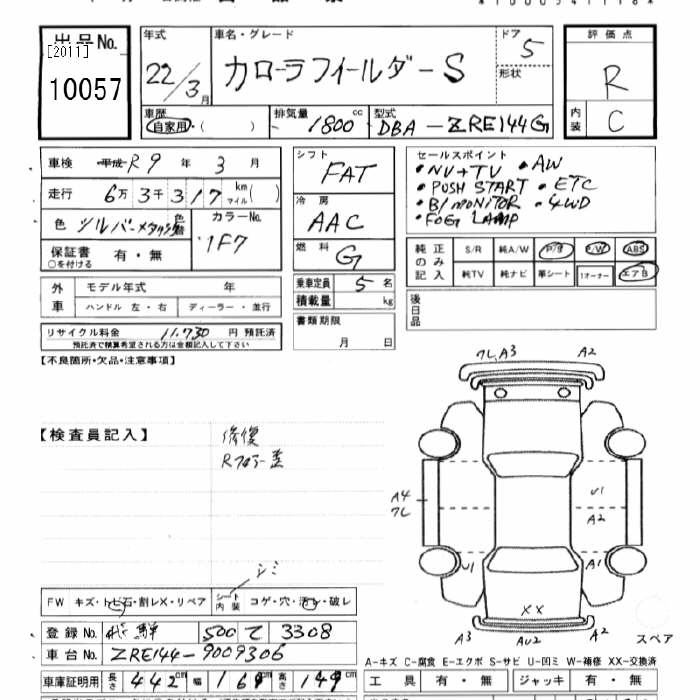 出品No.
[2011]
10057
年式
22/3月
車名・グレード
カローラフィールダーS
ドア
5
形状
評価点
R
内装
C
車歴
自家用・( )
排気量
1800 cc
型式
DBA-ZRE144G
車検 平成 R9 年 3 月
走行 6万3千317 km マイル( )
色 シルバーメタリック 色替
カラーNo.
1F7
保証書 有・無
○を付ける
シフト
FAT
冷房
AAC
燃料
G
乗車定員 5 名
積載量 kg
書類期限
月 日
セールスポイント
・NV+TV ・AW
・PUSH START ・ETC
・B/MONITOR ・4WD
・FOG LAMP
純正のみ記入
S/R 純A/W P/S P/W ABS
純TV 純ナビ 革シート 1オーナー エアB
後日品
外車
モデル年式 年
ハンドル 左・右 ディーラー・並行
リサイクル料金 11,730 円 預託済
預託済で精算希望される方は金額記入して下さい
【不良箇所・欠品・注意事項】
【検査員記入】
修復
Rフロアー歪
シミ
FW キズ・トビ石・割レX・リペア
シート内装 コゲ・穴・汚レ・破レ
登録No. 飛騨 500 て 3308
車台No. ZRE144-9009306
車庫証明用 長さ 442cm 幅 169cm 高さ 149cm
フレ,A3
A2
A4
フレ
U1
A2
U1
A1
XX
A3
AU2
A2
スペア
A-キズ C-腐食 E-エクボ S-サビ U-凹ミ W-補修 XX-交換済
工具 有・無 ジャッキ 有・無